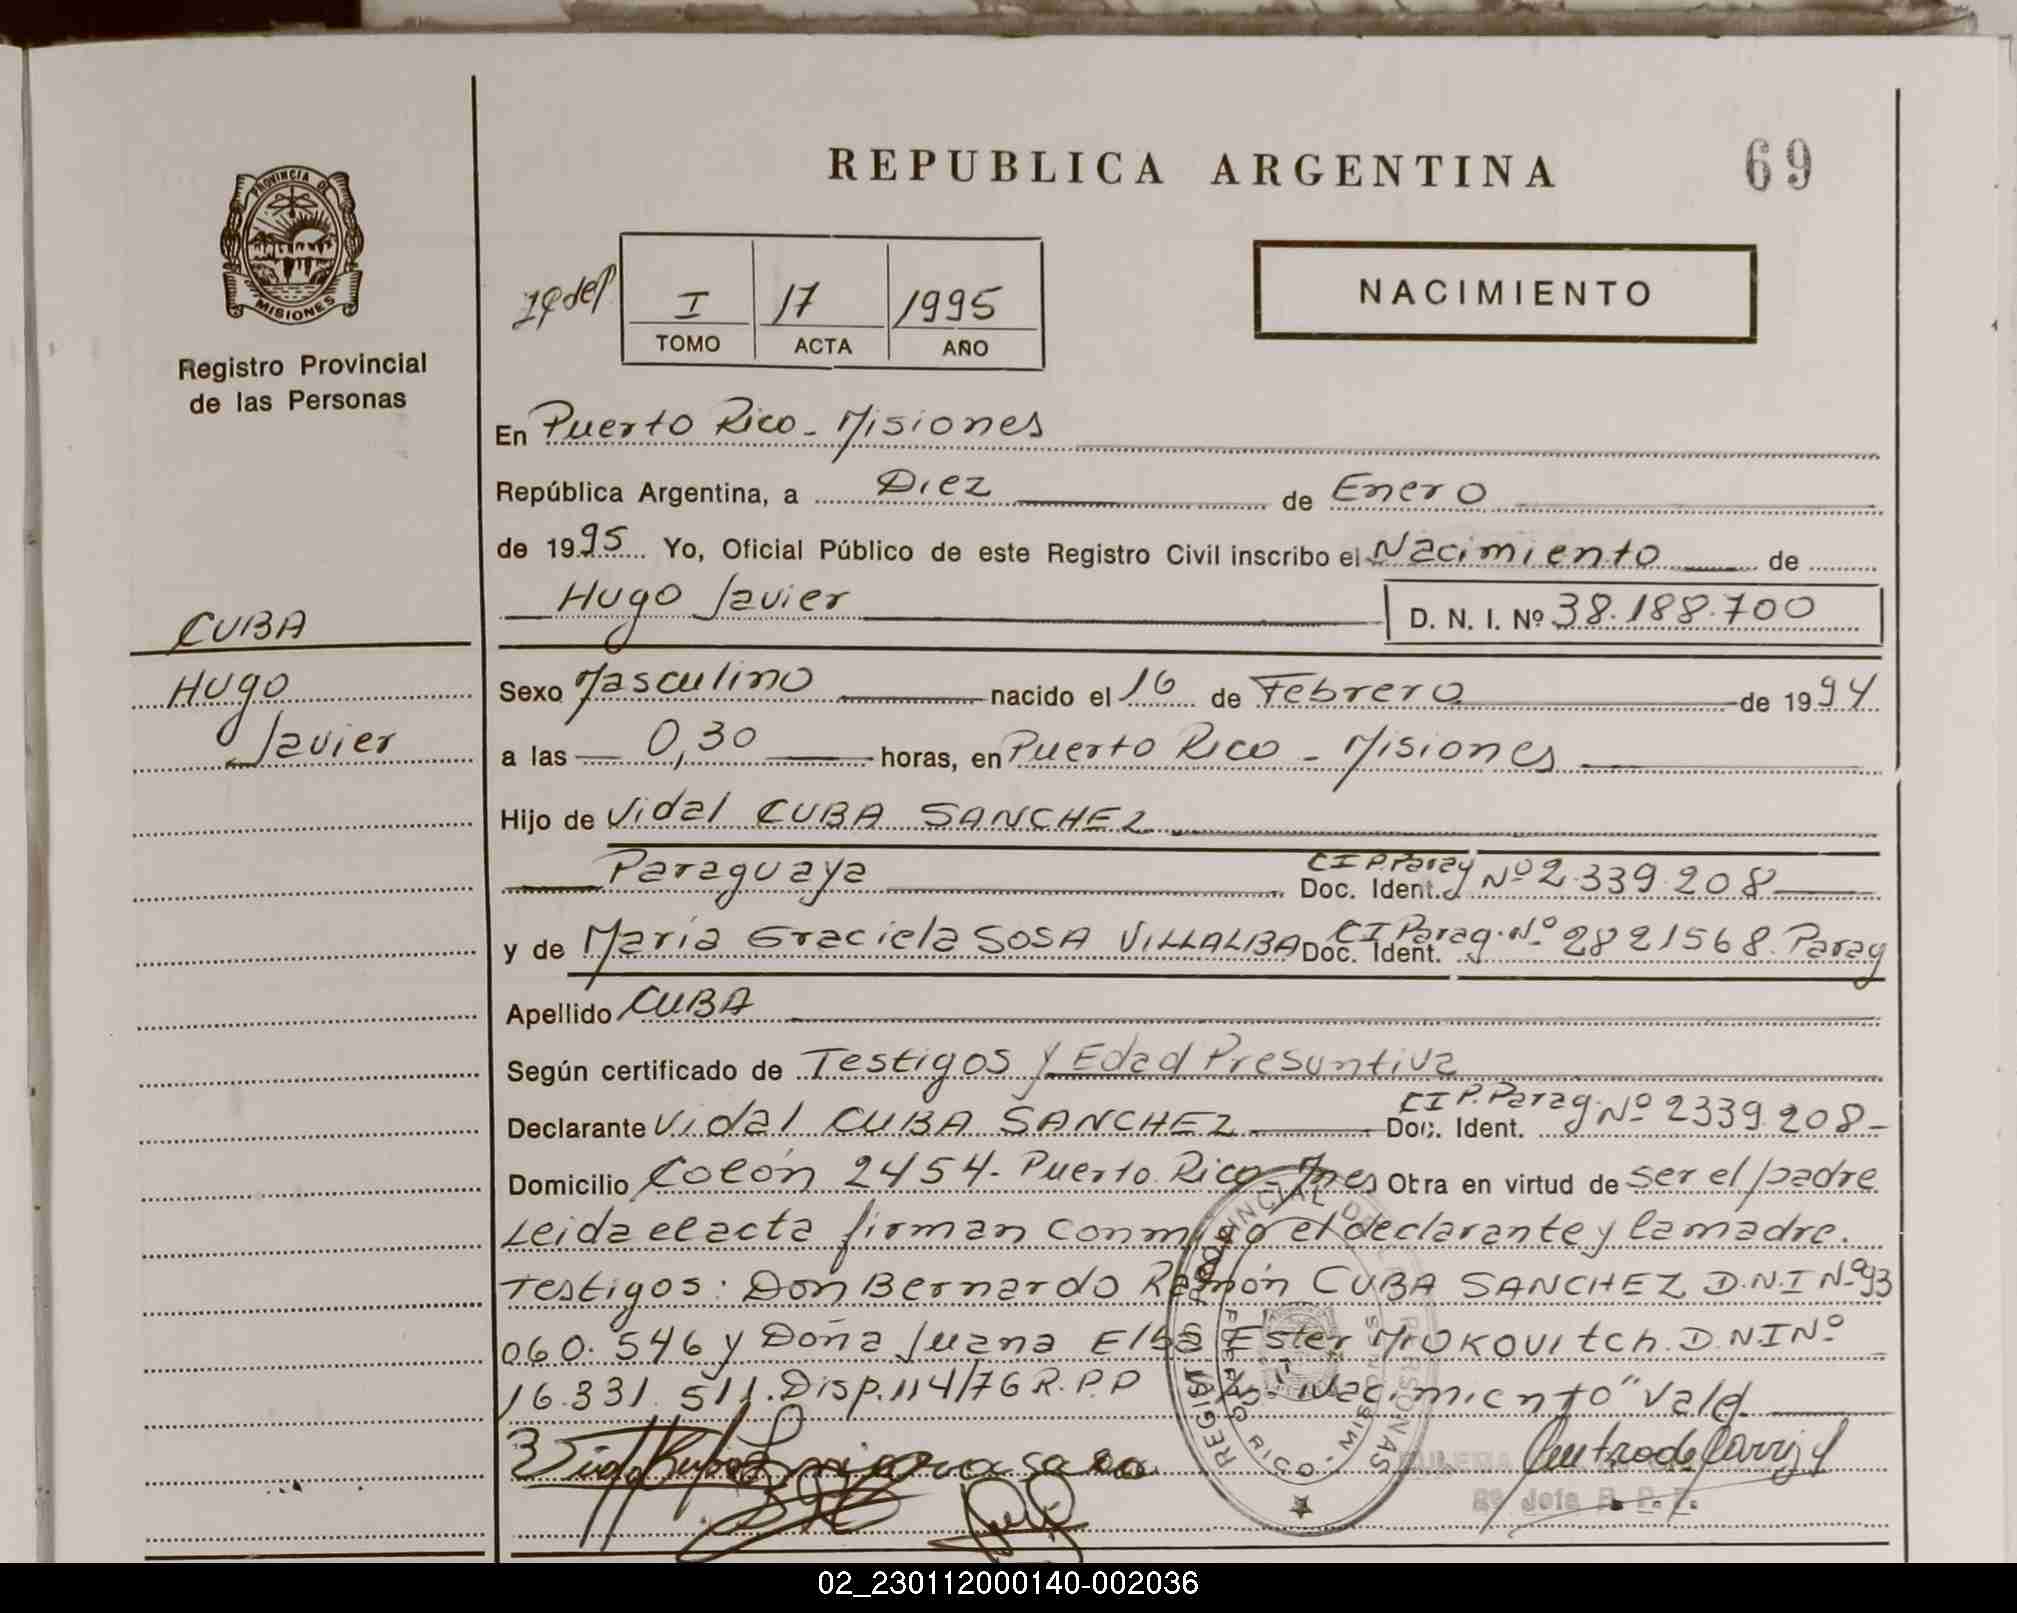 REPUBLICA ARGENTINA
69
PROVINCIA DE
MISIONES
Registro Provincial
de las Personas
I 17 1995
TOMO ACTA AÑO
NACIMIENTO
En Puerto Rico - Misiones
República Argentina, a Diez de Enero
de 1995 Yo, Oficial Público de este Registro Civil inscribo el Nacimiento de
Hugo Javier D. N. I. Nº 38.188.700
CUBA
Hugo
Javier
Sexo Masculino nacido el 16 de Febrero de 1994
a las 0,30 horas, en Puerto Rico - Misiones
Hijo de Vidal CUBA SANCHEZ
Paraguaya Doc. Ident. CI P. Paray Nº 2.339.208
y de María Graciela SOSA VILLALBA Doc. Ident. CI Parag. Nº 2821568. Paray
Apellido CUBA
Según certificado de Testigos y Edad Presuntiva
Declarante Vidal CUBA SANCHEZ Doc. Ident. CI P. Parag. Nº 2339.208-
Domicilio Colón 2454- Puerto Rico- Mnes Obra en virtud de ser el padre
Leida el acta firman conmigo el declarante y la madre.
Testigos: Don Bernardo Ramón CUBA SANCHEZ D.N.I Nº 93
060.546 y Doña Juana Elsa Ester D.N.I Nº
16.331.511. Disp. 114/76 R.P.P "Nacimiento" Vale
REGISTRO PROVINCIAL DE LAS PERSONAS
PUERTO RICO - MISIONES
Jefe R. P. P.
02_230112000140-002036